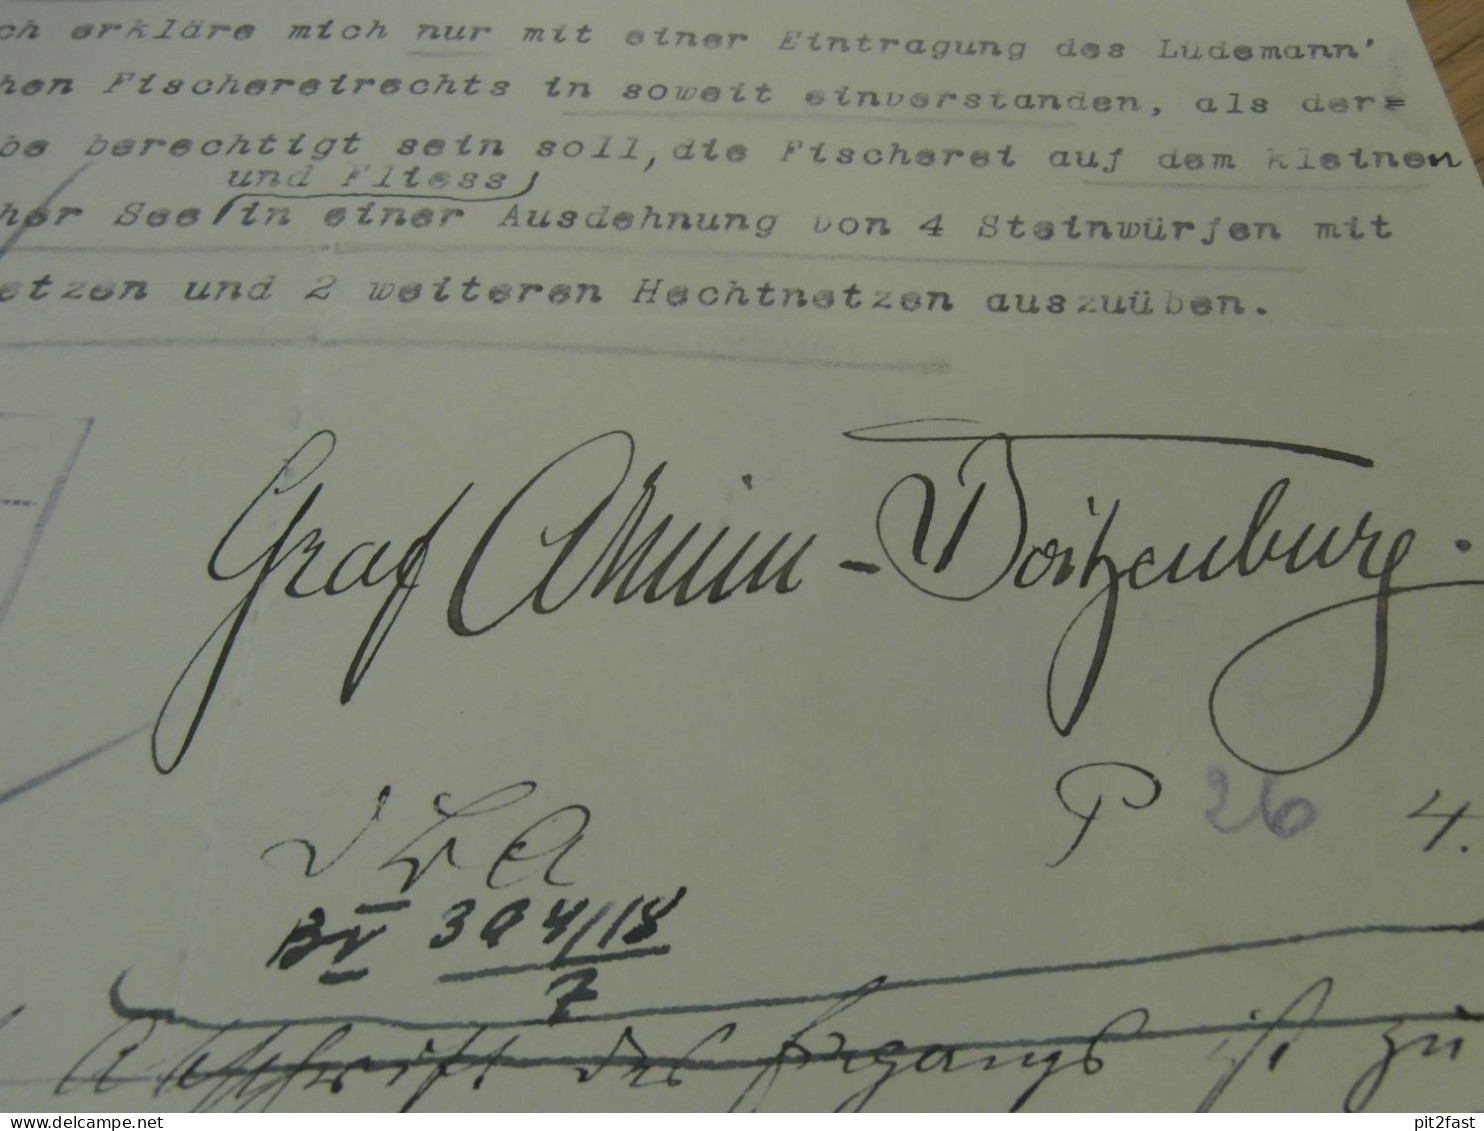 ch erkläre mich nur mit einer Eintragung des Lüdemann'
hen Fischereirechts in soweit einverstanden, als der=
be berechtigt sein soll, die Fischerei auf dem kleinen
und Fliess
her See in einer Ausdehnung von 4 Steinwürfen mit
etzen und 2 weiteren Hechtnetzen auszuüben.
Graf Arnim-Boitzenburg.
P 26 4.
304/18
7
Abschrift des ist zu
delcampe.net
pit2fast